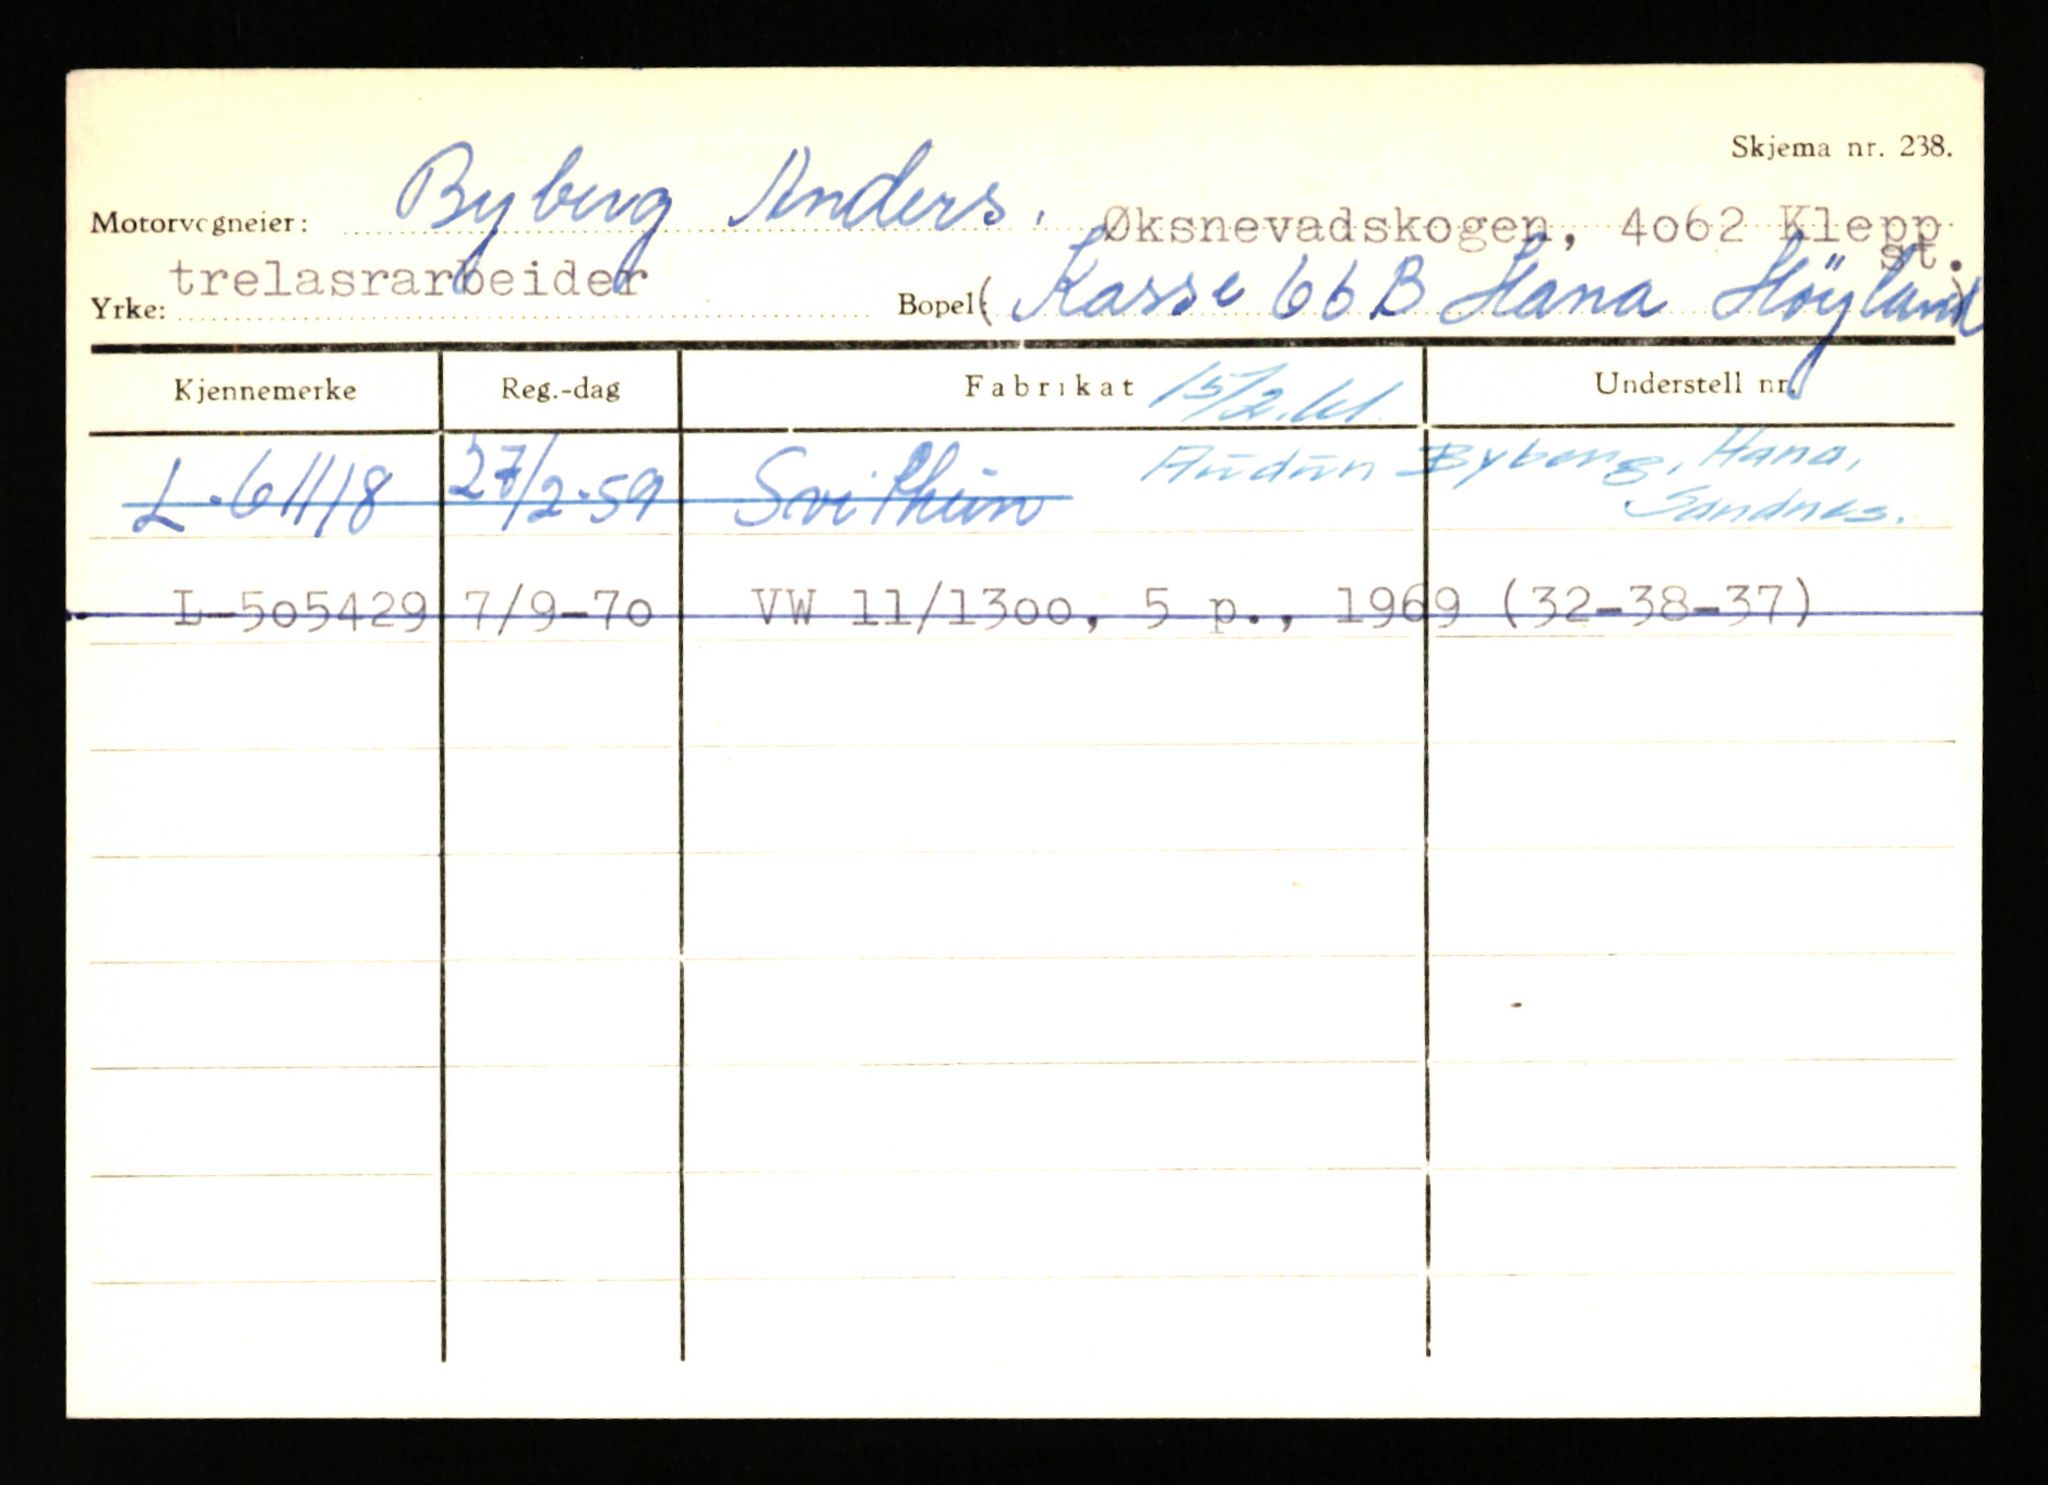 Skjema nr. 238.
Motorvogneier: Byberg Anders. Øksnevadskogen, 4o62 Klepp
st.
trelasrarbeider
Yrke: Bopel: (Kasse 66 B Hana Höyland)
Kjennemerke Reg.-dag Fabrikat 15/2.61. Understell nr.
Audun Byberg, Hana,
L-61118 27/2-59 Svithun Sandnes.
L-5o5429 7/9-7o VW 11/13oo, 5 p., 1969 (32-38-37)